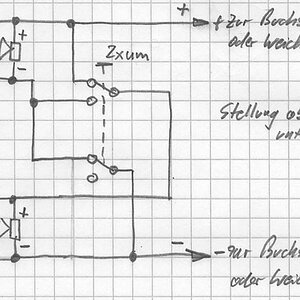 +
+ zur Buchs
oder Weich
+
2xum
-
Stellung
+
-
-
- zur Buchs
oder Weich